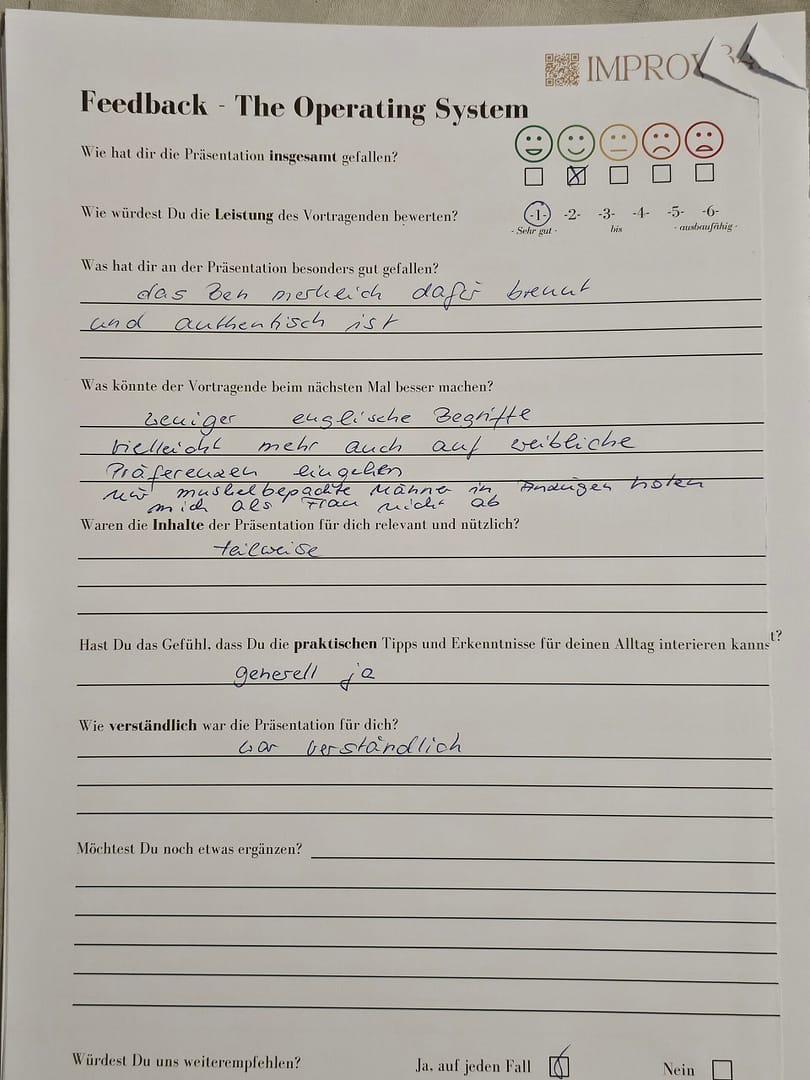 IMPROV
Feedback - The Operating System
Wie hat dir die Präsentation insgesamt gefallen?
Wie würdest Du die Leistung des Vortragenden bewerten? -1- -2- -3- -4- -5- -6-
- Sehr gut - bis - ausbaufähig -
Was hat dir an der Präsentation besonders gut gefallen?
das Ben merklich dafür brennt
und authentisch ist
Was könnte der Vortragende beim nächsten Mal besser machen?
weniger englische Begriffe
vielleicht mehr auch auf weibliche
Präferenzen eingehen
nur muskelbepackte Männer in Anzügen holen
mich als Frau nicht ab
Waren die Inhalte der Präsentation für dich relevant und nützlich?
teilweise
Hast Du das Gefühl, dass Du die praktischen Tipps und Erkenntnisse für deinen Alltag interieren kannst?
generell ja
Wie verständlich war die Präsentation für dich?
war verständlich
Möchtest Du noch etwas ergänzen?
Würdest Du uns weiterempfehlen? Ja, auf jeden Fall Nein